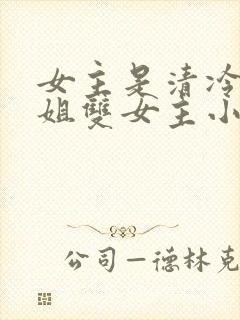 女主是清冷
姐雙女主小
公司—德林克